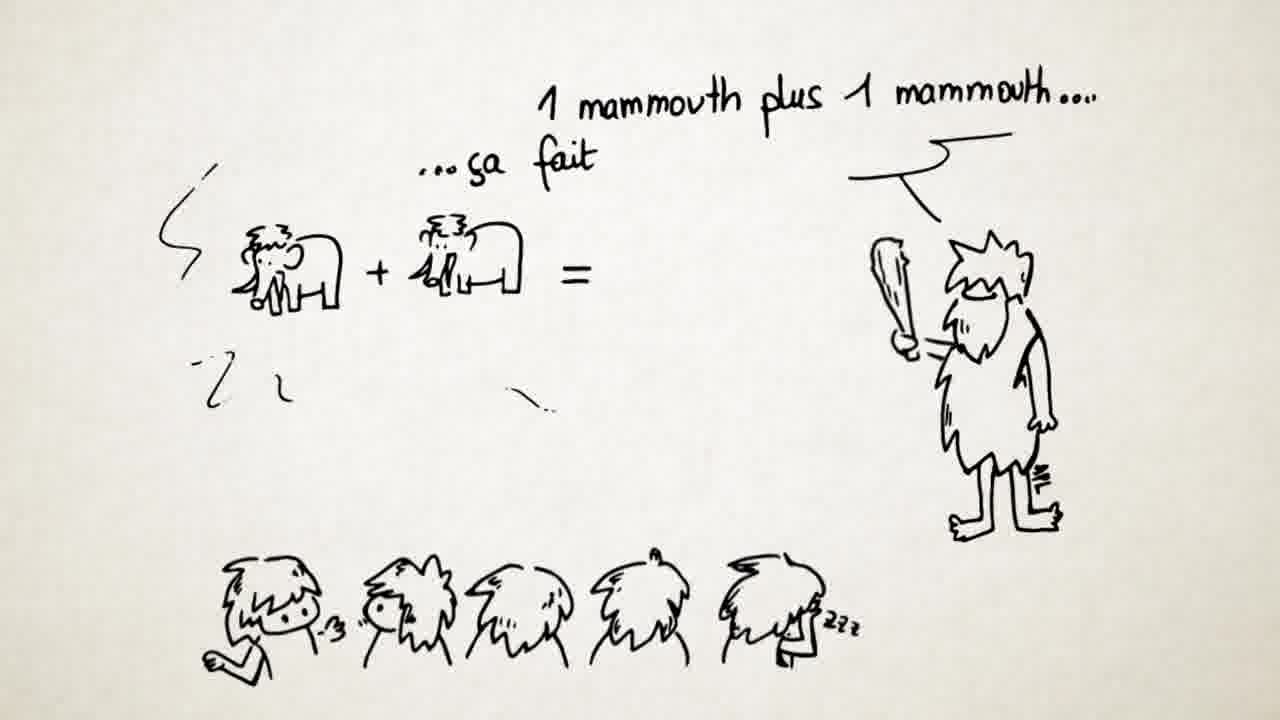 1 mammouth plus 1 mammouth....
...ça fait
+ =
zzz